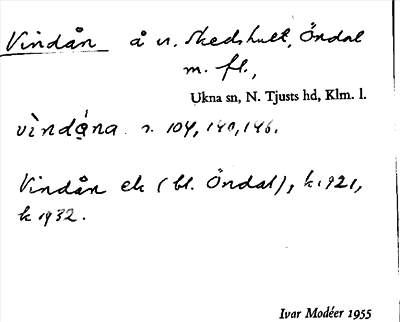 Vindån å u. Skedshult, Öndal
m. fl.,
Ukna sn, N. Tjusts hd, Klm. l.
vìndą́na s. 104, 140, 146.
Vindån ek (bl. Öndal), k 1921,
k 1932.
Ivar Modéer 1955